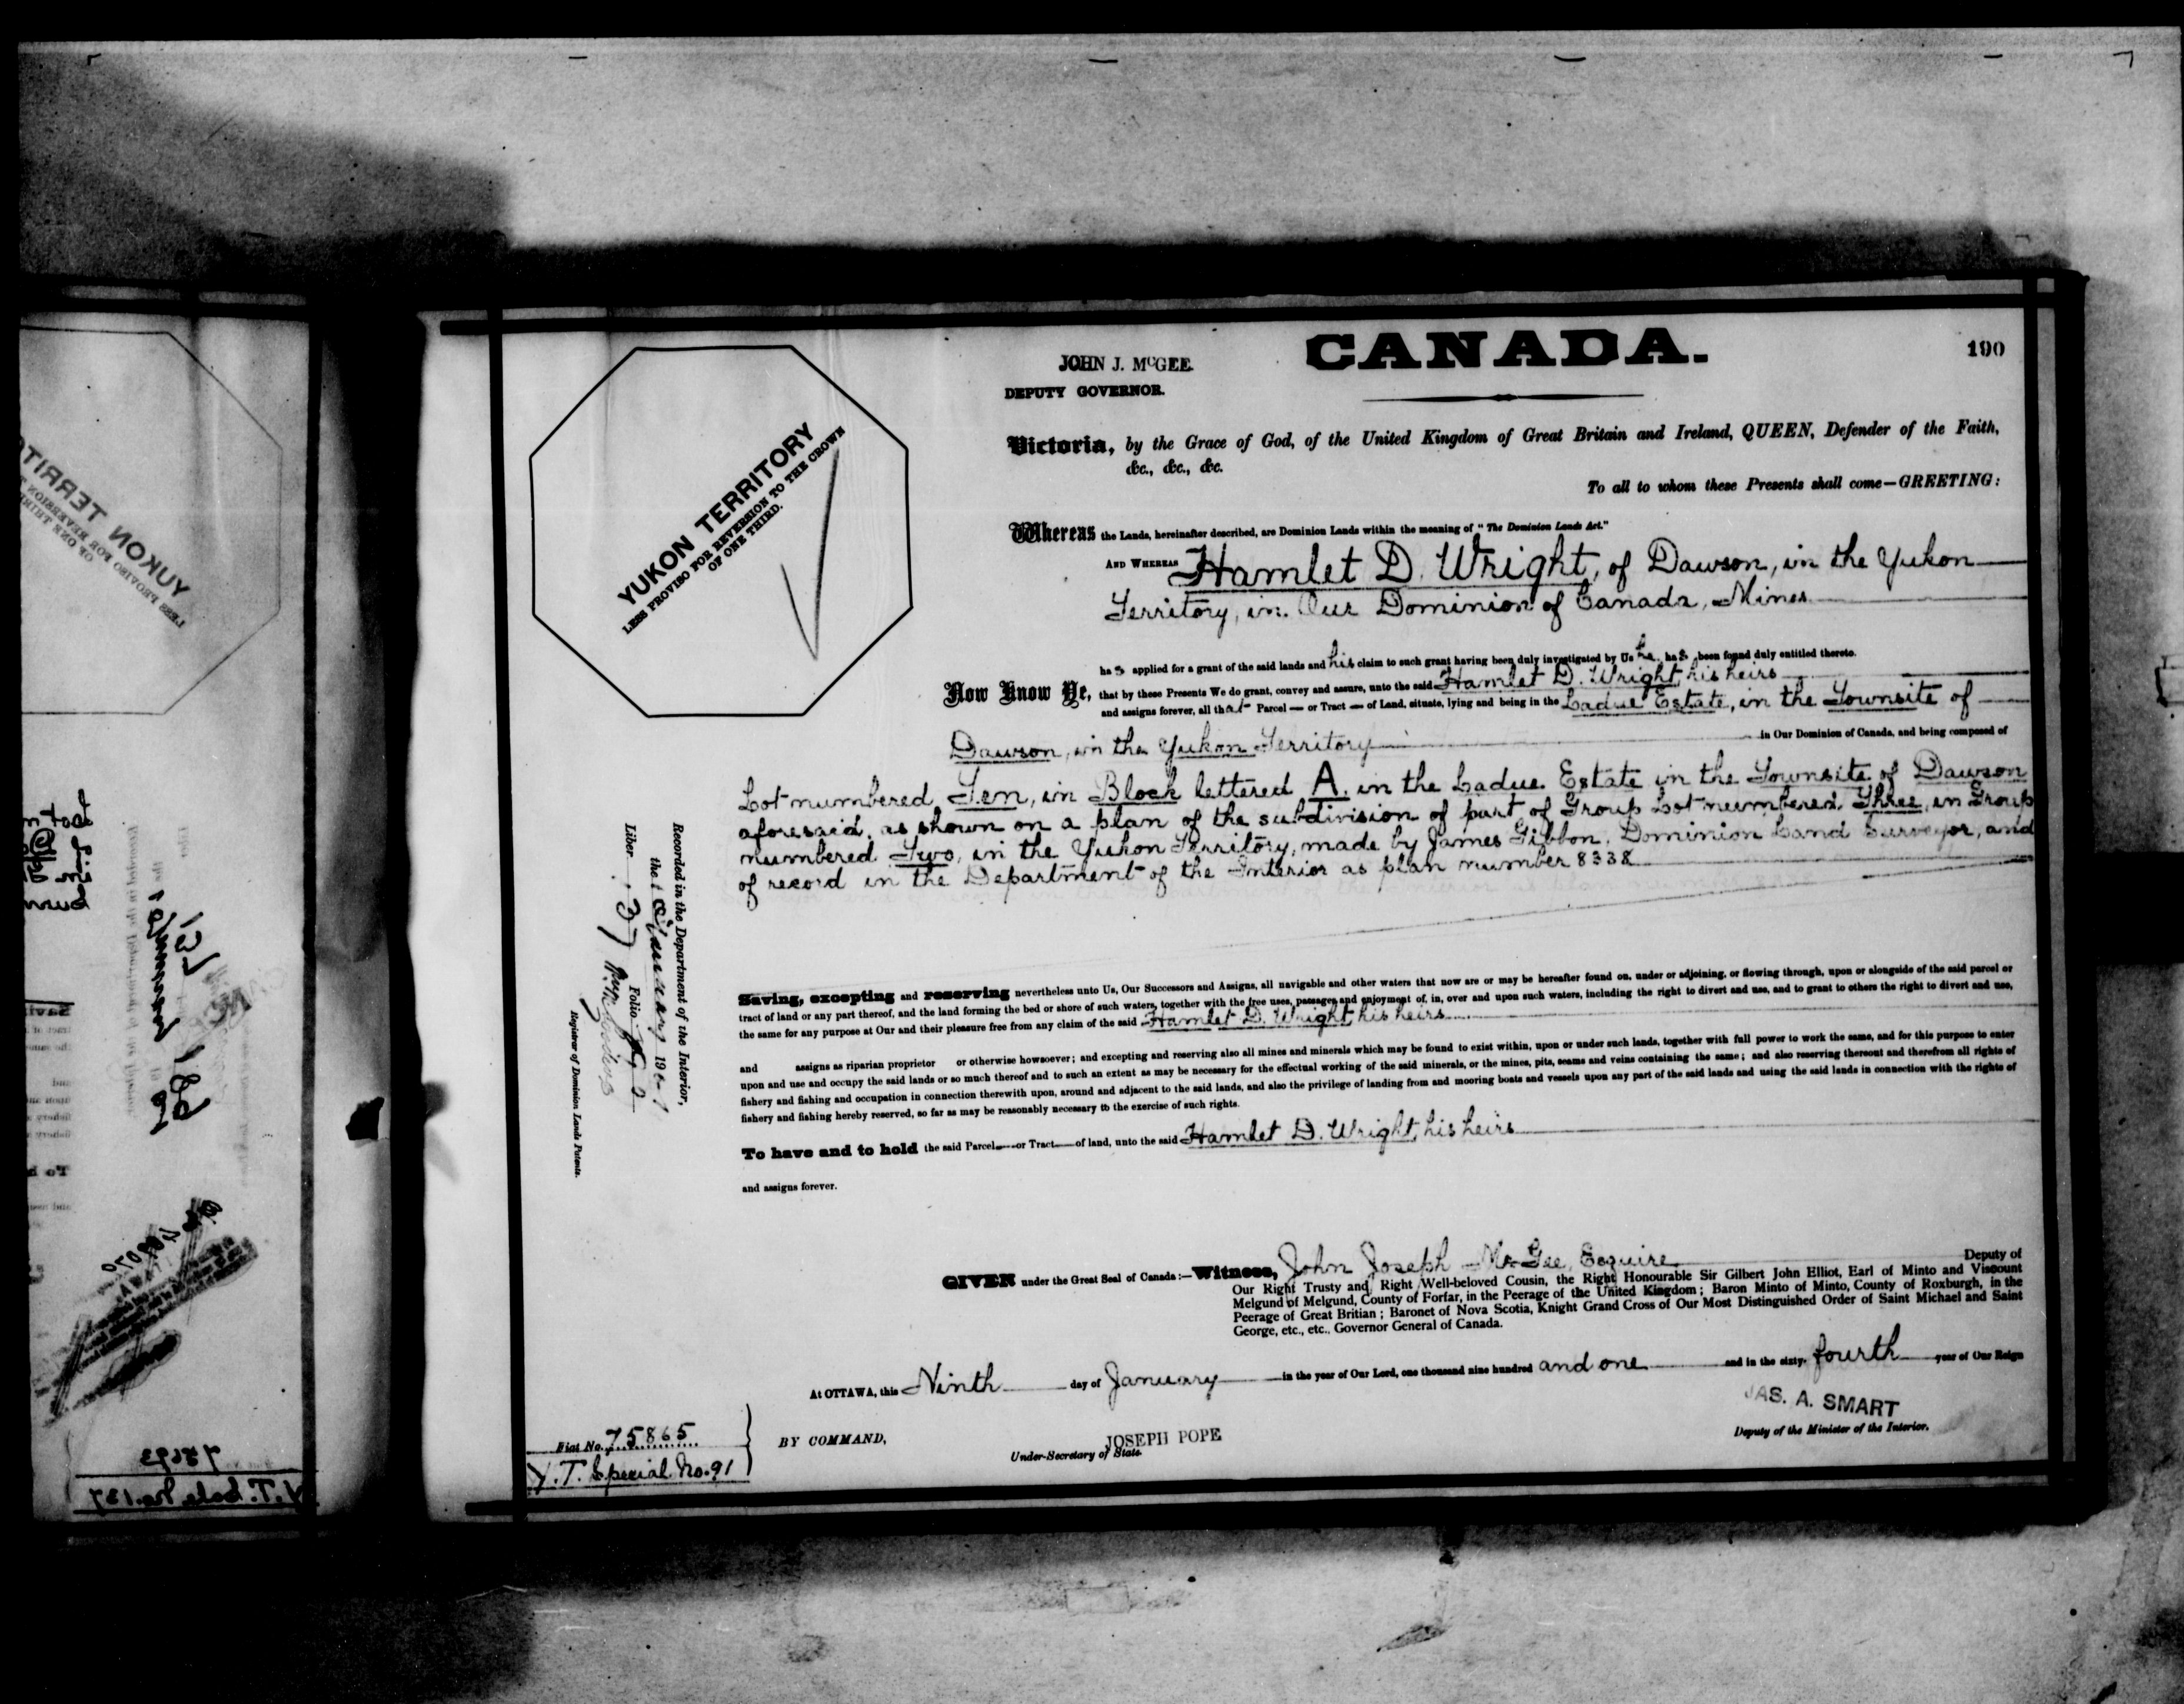 CANADA.
190
JOHN J. McGEE.
DEPUTY GOVERNOR.
Victoria, by the Grace of God, of the United Kingdom of Great Britain and Ireland, QUEEN, Defender of the Faith,
&c., &c., &c.
To all to whom these Presents shall come—GREETING:
YUKON TERRITORY
LESS PROVISO FOR REVERSION TO THE CROWN
OF ONE THIRD.
Whereas the Lands, hereinafter described, are Dominion Lands within the meaning of "The Dominion Lands Act."
AND WHEREAS Hamlet D. Wright, of Dawson, in the Yukon
Territory, in Our Dominion of Canada, Miner
has applied for a grant of the said lands and his claim to such grant having been duly investigated by Us he has been found duly entitled thereto.
Now Know Ye, that by these Presents We do grant, convey and assure, unto the said Hamlet D. Wright, his heirs
and assigns forever, all that Parcel — or Tract — of Land, situate, lying and being in the Ladue Estate, in the Townsite of
Dawson, in the Yukon Territory in Our Dominion of Canada, and being composed of
Lot numbered Ten, in Block lettered A, in the Ladue Estate in the Townsite of Dawson
aforesaid, as shown on a plan of the subdivision of part of Group Lot numbered Three, in Group
numbered Two, in the Yukon Territory, made by James Gibbon, Dominion Land Surveyor, and
of record in the Department of the Interior as plan number 8338
Recorded in the Department of the Interior,
the January 1901
Liber 37 Folio
Registrar of Dominion Lands Patents.
Saving, excepting and reserving nevertheless unto Us, Our Successors and Assigns, all navigable and other waters that now are or may be hereafter found on, under or adjoining, or flowing through, upon or alongside of the said parcel or
tract of land or any part thereof, and the land forming the bed or shore of such waters, together with the free uses, passages and enjoyment of, in, over and upon such waters, including the right to divert and use, and to grant to others the right to divert and use,
the same for any purpose at Our and their pleasure free from any claim of the said Hamlet D. Wright, his heirs
and assigns as riparian proprietor or otherwise howsoever; and excepting and reserving also all mines and minerals which may be found to exist within, upon or under such lands, together with full power to work the same, and for this purpose to enter
upon and use and occupy the said lands or so much thereof and to such an extent as may be necessary for the effectual working of the said minerals, or the mines, pits, seams and veins containing the same; and also reserving thereout and therefrom all rights of
fishery and fishing and occupation in connection therewith upon, around and adjacent to the said lands, and also the privilege of landing from and mooring boats and vessels upon any part of the said lands and using the said lands in connection with the rights of
fishery and fishing hereby reserved, so far as may be reasonably necessary to the exercise of such rights.
To have and to hold the said Parcel — or Tract — of land, unto the said Hamlet D. Wright, his heirs
and assigns forever.
GIVEN under the Great Seal of Canada:—Witness, John Joseph McGee, Esquire Deputy of
Our Right Trusty and Right Well-beloved Cousin, the Right Honourable Sir Gilbert John Elliot, Earl of Minto and Viscount
Melgund of Melgund, County of Forfar, in the Peerage of the United Kingdom; Baron Minto of Minto, County of Roxburgh, in the
Peerage of Great Britian; Baronet of Nova Scotia, Knight Grand Cross of Our Most Distinguished Order of Saint Michael and Saint
George, etc., etc., Governor General of Canada.
At OTTAWA, this Ninth day of January in the year of Our Lord, one thousand nine hundred and one and in the sixty-fourth year of Our Reign
JAS. A. SMART
Deputy of the Minister of the Interior.
BY COMMAND,
JOSEPH POPE
Under-Secretary of State.
Fiat No. 75865
Y.T. Special No. 91